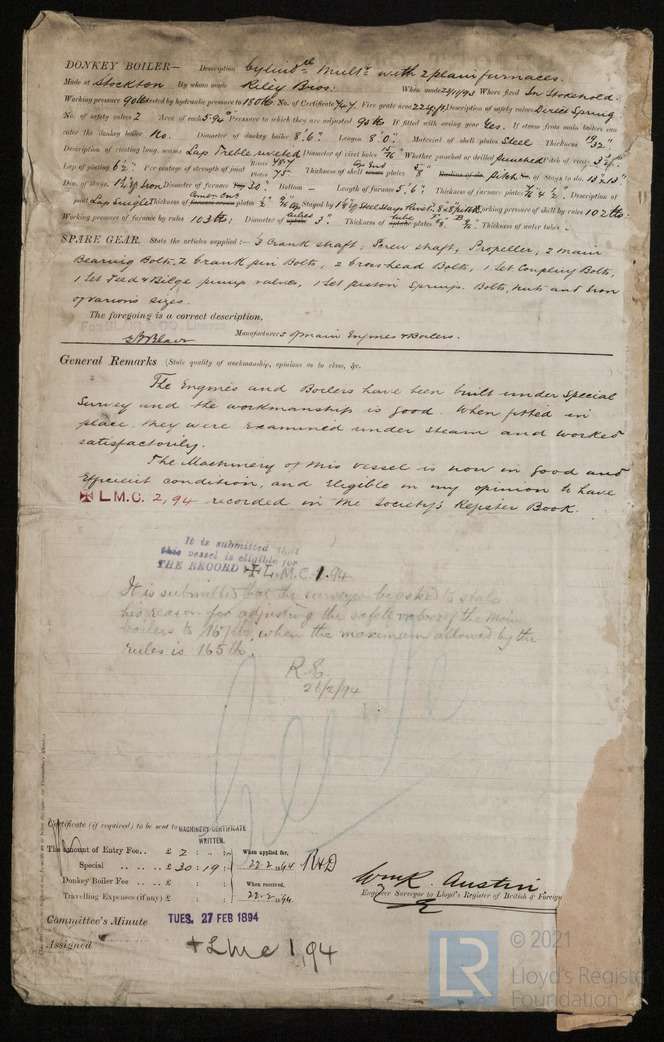 DONKEY BOILER— Description Cylindl Multr with 2 plain furnaces.
Made at Stockton By whom made Riley Bros. When made 24/1/93 Where fixed In Stokehold.
Working pressure 90 lbs tested by hydraulic pressure to 180 lbs No. of Certificate 747 Fire grate area 22 sq ft Description of safety valves Direct Spring
No. of safety valves 2 Area of each 5.94" Pressure to which they are adjusted 95 lbs If fitted with easing gear Yes. If steam from main boilers can
enter the donkey boiler No. Diameter of donkey boiler 8'.6" Length 8'.0" Material of shell plates Steel Thickness
Description of riveting long. seams Lap Treble riveted Diameter of rivet holes 15/16" Whether punched or drilled punched Pitch of rivets
Lap of plating 6 1/2" Per centage of strength of joint Rivets Plates 75 Thickness of shell plates Pitch of Stays to do. 15" x 15"
Dia. of stays. Diameter of furnace 30" Bottom — Length of furnace 5'.6" Thickness of furnace plates Description of
joint Lap Single Thickness of plates Stayed by Working pressure of shell by rules 102 lbs
Working pressure of furnace by rules 103 lbs; Diameter of tubes 3" Thickness of tube plates Thickness of water tubes -
SPARE GEAR. State the articles supplied:— 1/3 Crank shaft, Screw shaft, Propeller, 2 Main
Bearing Bolts, 2 Crank pin Bolts, 2 Crosshead Bolts, 1 Set Coupling Bolts,
1 Set Feed & Bilge pump valves, 1 Set piston Springs. Bolts, nuts and Iron
of various sizes.
The foregoing is a correct description,
For BLAIR & CO., Limited
G Blair Manufacturers of main Engines & Boilers.
General Remarks (State quality of workmanship, opinions as to class, &c.
The Engines and Boilers have been built under Special
Survey and the workmanship is good. When fitted in
place they were examined under steam and worked
satisfactorily.
The Machinery of this vessel is now in good and
efficient condition, and Eligible in my opinion to have
✠ L.M.C. 2,94 recorded in the Society's Register Book.
It is submitted that
this vessel is eligible for
THE RECORD ✠ L.M.C. 1.94
It is submitted that the surveyor be asked to state
his reason for adjusting the safety valves of the main
boilers to 167 lbs, when the maximum allowed by the
rules is 165 lb.
26/2/94
Certificate (if required) to be sent to
MACHINERY CERTIFICATE
WRITTEN.
The amount of Entry Fee.. £ 2 : " : " When applied for,
Special .. .. .. £ 30 : 19 : 22.2.1894
Donkey Boiler Fee .. .. £ : : When received,
Travelling Expenses (if any) £ : : 22.2.1894
Wm R. Austin
Engineer Surveyor to Lloyd's Register of British & Foreign
Committee's Minute TUES. 27 FEB 1894
Assigned + LMC 1,94
LR
© 2021
Lloyd's Register
Foundation